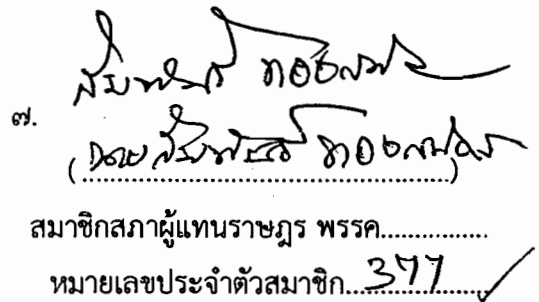 สัมพันธ์ ทอง
๗.
(นายสัมพันธ์ ทอง)
สมาชิกสภาผู้แทนราษฎร พรรค................
หมายเลขประจำตัวสมาชิก....377....